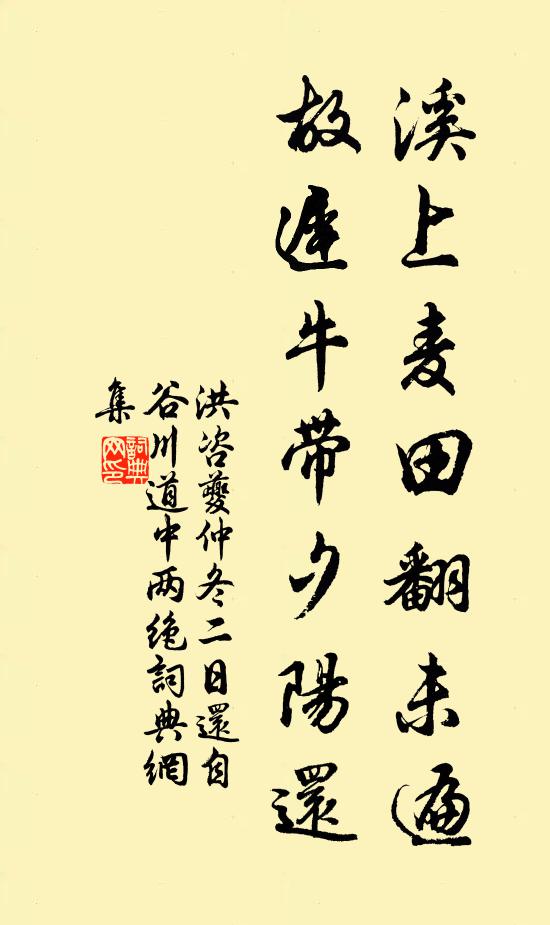 溪上麦田翻未遍
故遲牛带夕陽還
洪咨夔仲冬二日還自
谷川道中两绝詞典網
集
詞典
网印